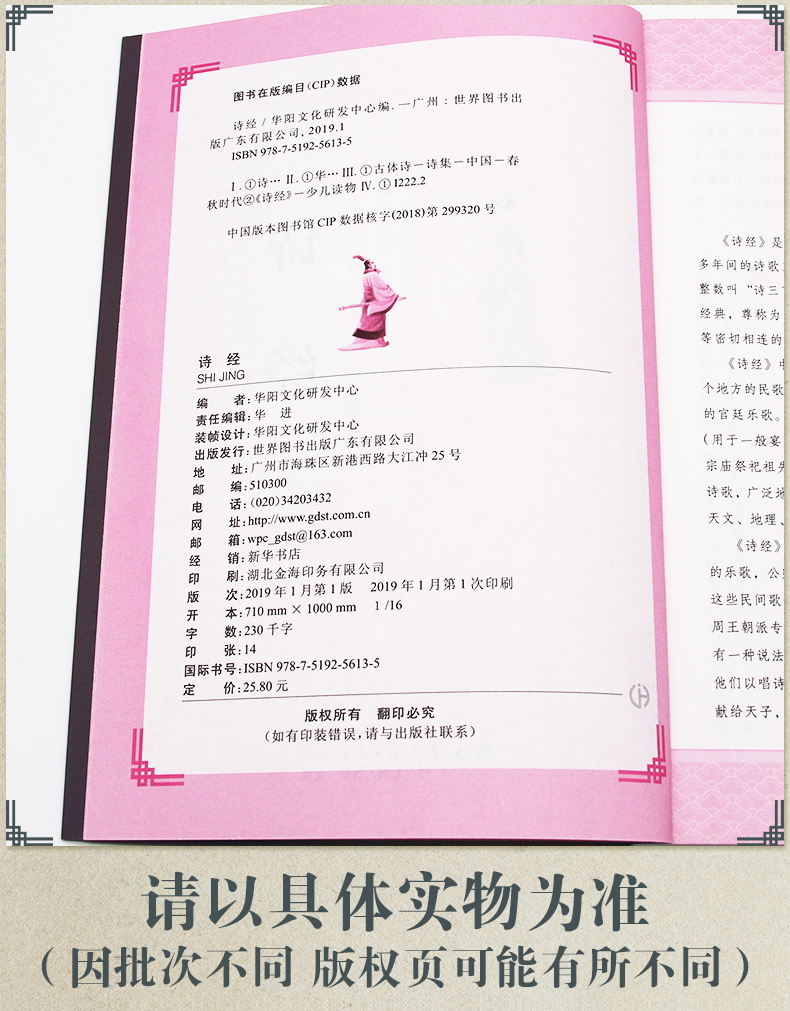 图书在版编目(CIP)数据
诗经 / 华阳文化研发中心编. —广州：世界图书出
版广东有限公司, 2019.1
ISBN 978-7-5192-5613-5
Ⅰ.①诗… Ⅱ.①华… Ⅲ.①古体诗－诗集－中国－春
秋时代②《诗经》－少儿读物 Ⅳ.① I222.2
中国版本图书馆 CIP 数据核字(2018)第 299320 号
诗 经
SHI JING
编　　者：华阳文化研发中心
责任编辑：华　进
装帧设计：华阳文化研发中心
出版发行：世界图书出版广东有限公司
地　　址：广州市海珠区新港西路大江冲 25 号
邮　　编：510300
电　　话：(020)34203432
网　　址：http://www.gdst.com.cn
邮　　箱：wpc_gdst@163.com
经　　销：新华书店
印　　刷：湖北金海印务有限公司
版　　次：2019 年 1 月第 1 版　2019 年 1 月第 1 次印刷
开　　本：710 mm × 1000 mm　1 /16
字　　数：230 千字
印　　张：14
国际书号：ISBN 978-7-5192-5613-5
定　　价：25.80 元
版权所有　翻印必究
(如有印装错误，请与出版社联系)
《诗经》是
多年间的诗歌
整数叫“诗三
经典，尊称为
等密切相连的
《诗经》中
个地方的民歌
的宫廷乐歌。
(用于一般宴
宗庙祭祀祖先
诗歌，广泛地
天文、地理、
《诗经》
的乐歌，公
这些民间歌
周王朝派专
有一种说法
他们以唱诗
献给天子，
请以具体实物为准
（因批次不同 版权页可能有所不同）